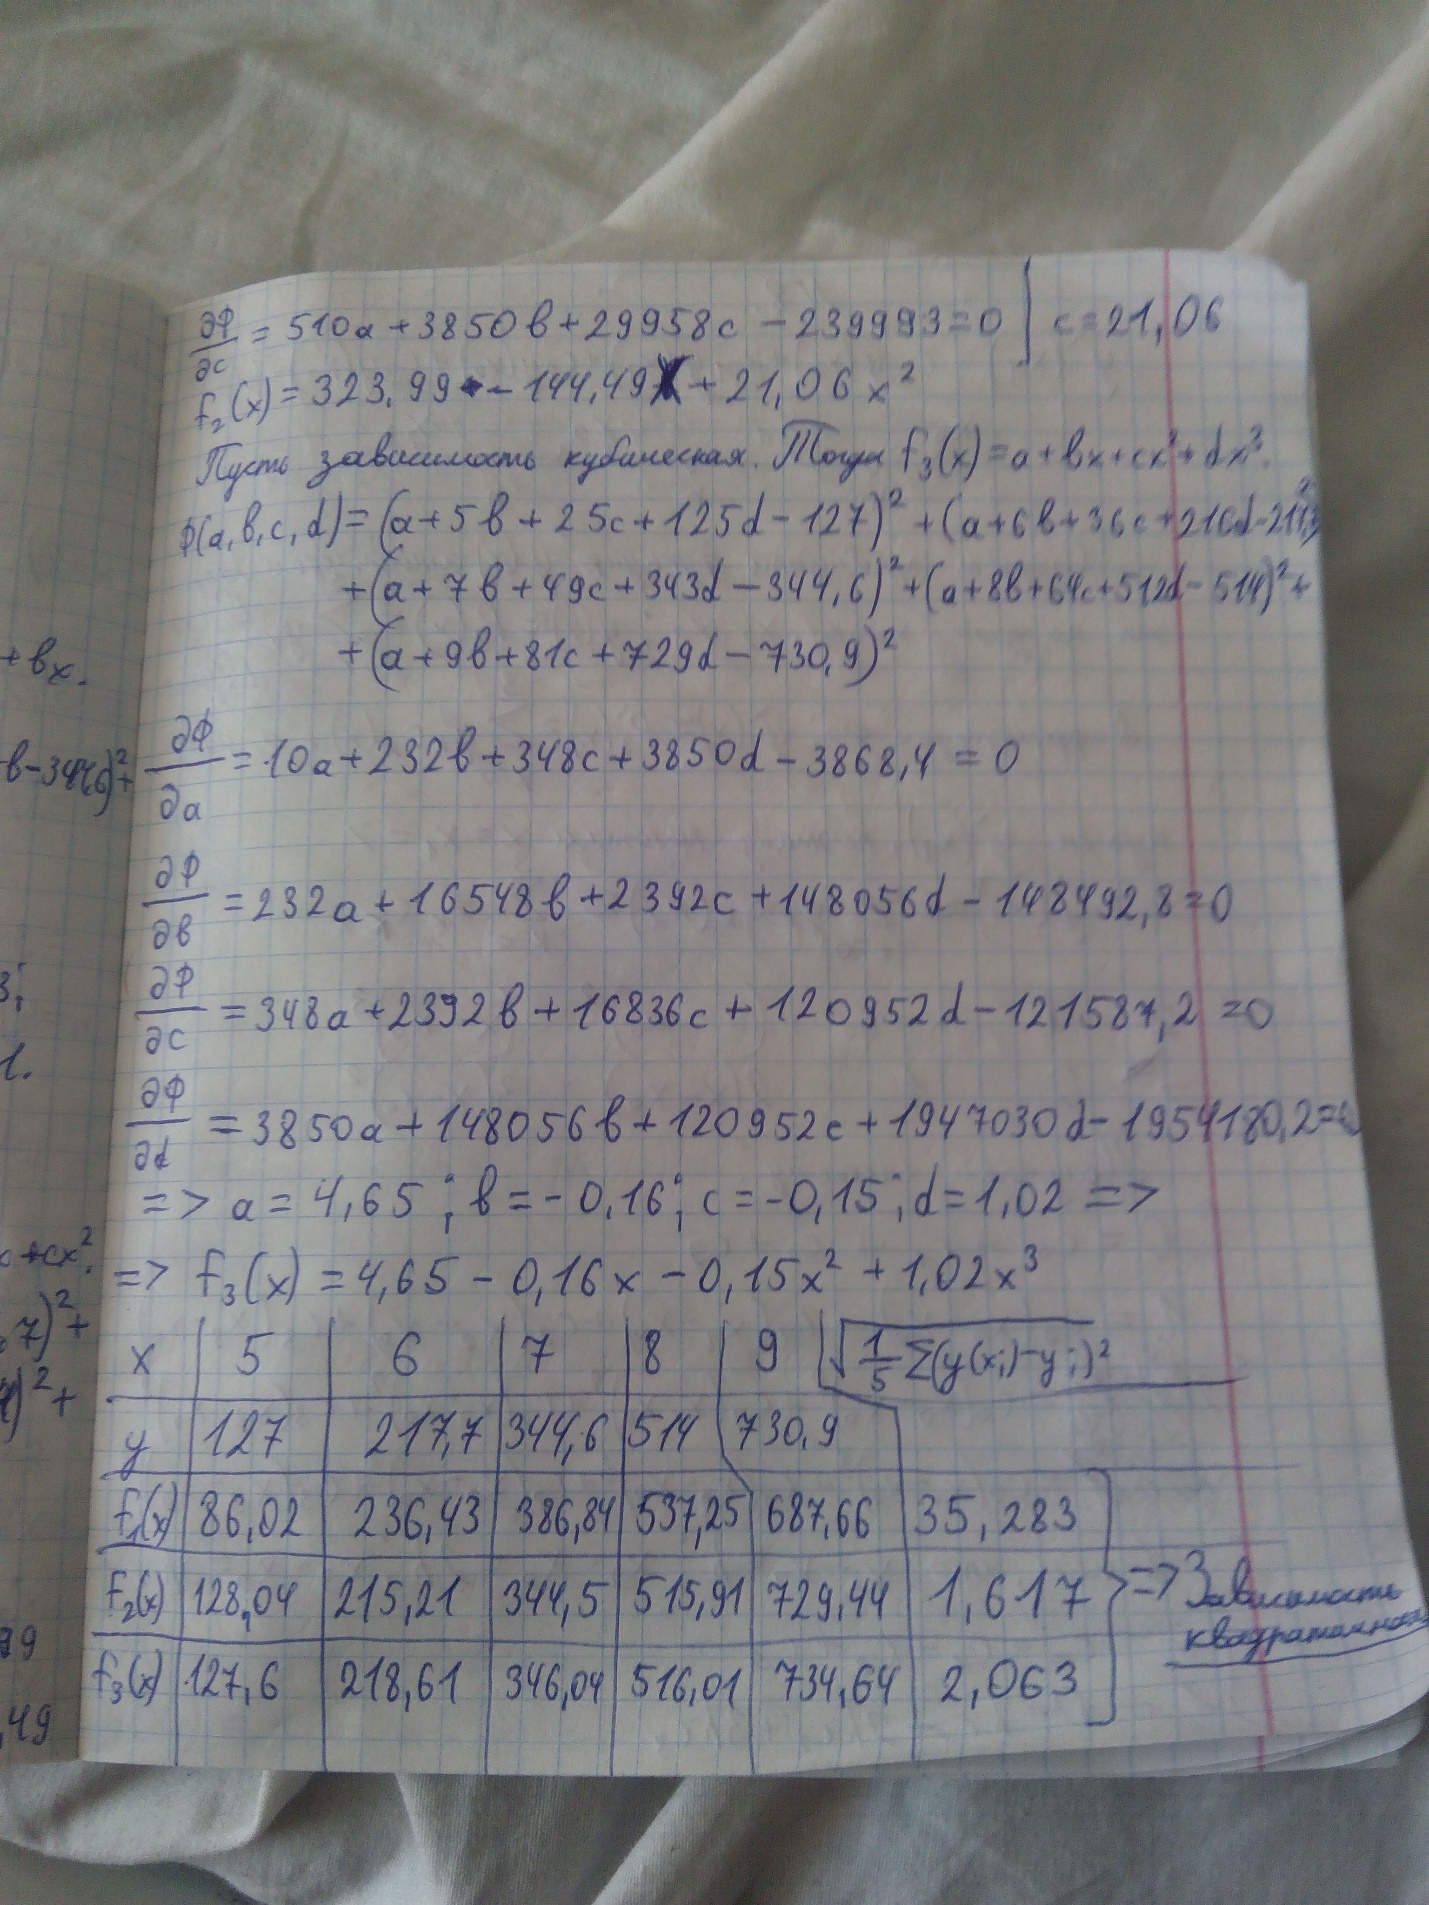 ∂Φ/∂c = 510a + 3850b + 29958c - 239993 = 0 ] c = 21,06
f₂(x) = 323,99 - 144,49x + 21,06x²
Пусть зависимость кубическая. Тогда f₃(x) = a + bx + cx² + dx³.
Φ(a,b,c,d) = (a + 5b + 25c + 125d - 127)² + (a + 6b + 36c + 216d -
+ (a + 7b + 49c + 343d - 344,6)² + (a + 8b + 64c + 512d - 514)² +
+ (a + 9b + 81c + 729d - 730,9)²
∂Φ/∂a = 10a + 232b + 348c + 3850d - 3868,4 = 0
∂Φ/∂b = 232a + 16548b + 2392c + 148056d - 148492,8 = 0
∂Φ/∂c = 348a + 2392b + 16836c + 120952d - 121587,2 = 0
∂Φ/∂d = 3850a + 148056b + 120952c + 1947030d - 1954180,2 = 0
=> a = 4,65; b = -0,16; c = -0,15; d = 1,02 =>
=> f₃(x) = 4,65 - 0,16x - 0,15x² + 1,02x³
x | 5 | 6 | 7 | 8 | 9 | √(1/5 Σ(y(xᵢ) - yᵢ)²
y | 127 | 217,7 | 344,6 | 514 | 730,9
f₁(x) | 86,02 | 236,43 | 386,84 | 537,25 | 687,66 | 35,283
f₂(x) | 128,04 | 215,21 | 344,5 | 515,91 | 729,44 | 1,617 => Зависимость
квадратичная
f₃(x) | 127,6 | 218,61 | 346,04 | 516,01 | 734,64 | 2,063
+ bx.
1.
+ cx².
,7)² +
)² +
,49